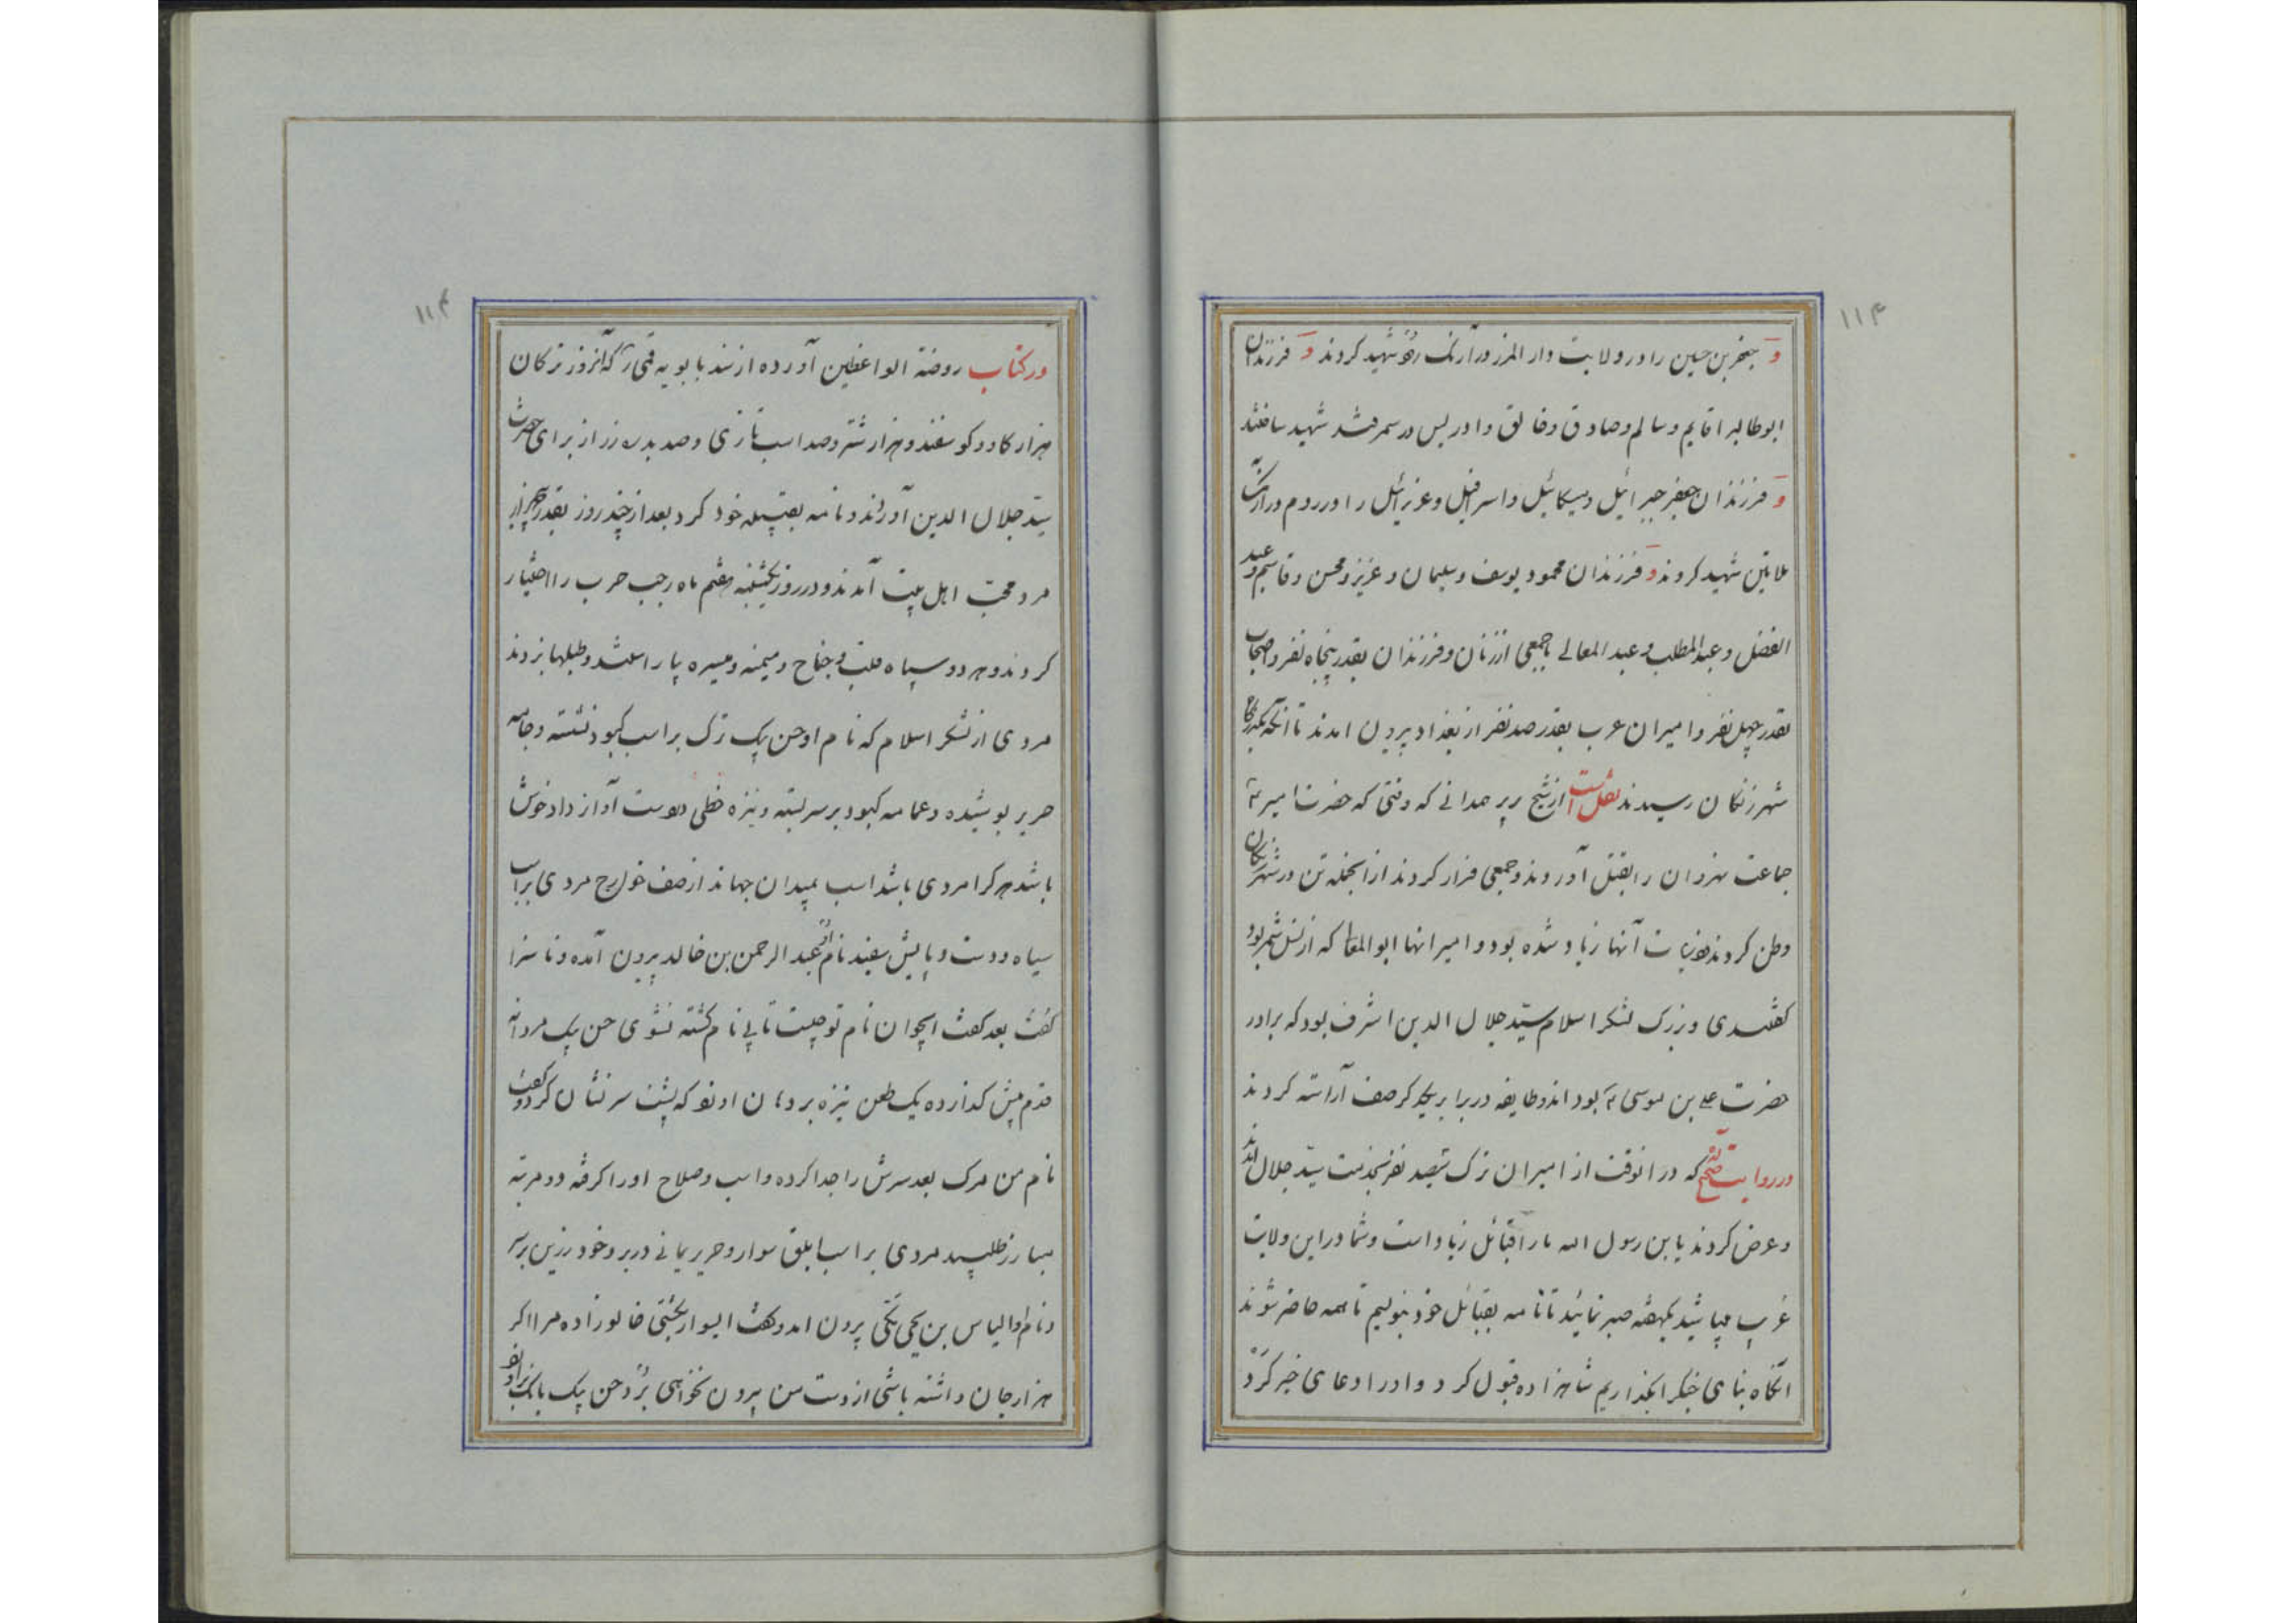 ۱۱۴
و جعفر بن حسین را در ولایت دار المرز در آرنک رفته شهید کردند و فرزندان
ابوطالب را قایم و سالم و صادق و فائق و ادریس در سمرقند شهید ساختند
و فرزندان جعفر جبرائیل و میکائیل و اسرافیل و عزرائیل را در روم در آن
ملاعین شهید کردند و فرزندان محمود یوسف و سلیمان و عزیز و محسن و قاسم و عبد
الفضل و عبد المطلب و عبد المعالی با جمعی از زنان و فرزندان بقدر پنجاه نفر و اصحاب
بقدر چهل نفر و امیران عرب بقدر صد نفر از بغداد بیرون امدند تا انکه
شهر زنکان رسیدند نقل است از شیخ همدانی که وقتی که حضرت امیر ع
جماعت نهروان را بقتل آوردند و جمعی فرار کردند از انجمله تن در شهر زنکان
وطن کردند ذریات آنها زیاد شده بود و امیر انها ابو المعا که از نسل شمر بود
کفتندی و بزرک لشکر اسلام سید جلال الدین اشرف بود که برادر
حضرت علی بن موسی ع بود اندو طایفه در برابر یکدیکر صف آراسته کردند
در روایت صحیح که در انوقت از امیران ترک سیصد نفر بخدمت سید جلال
و عرض کردند یابن رسول الله ما را قبائل زیاد است و شما در این ولایت
غریب میباشید یکهفته صبر نمائید تا نامه بقبائل خود بنویسیم تا همه حاضر شوند
انکاه بنای جنک را بکذاریم شاهزاده قبول کرد و ادرا دعای خیر کرد
۱۱۴
در کتاب روضة الواعظین آورده از سند بابویه قمی ره که آنروز ترکان
هزار کاو و کوسفند و هزار شتر و صد اسب تازی و صد بدره زر از برای حضرت
سید جلال الدین آوردند و نامه بقبیله خود کرد بعد از چند روز بقدر هزار
مرد محب اهل بیت آمدند و در روز یکشنبه هفتم ماه رجب حرب را اختیار
کردند و هر دو سپاه قلب و جناح و میمنه و میسره بیاراستند و طبلها بزدند
مردی از لشکر اسلام که نام او حسن بیک ترک بر اسب کبود نشسته و جامه
حریر پوشیده و عمامه کبود بر سر بسته و نیزه خطی بدست آواز داد خوش
باشد هر کرا مردی باشد اسب بمیدان جهاند از صف خوارج مردی بر اسب
سیاه و دست و پایش سفید نام او عبد الرحمن بن خالد بیرون آمده و ناسزا
کفت بعد کفت ایجوان نام تو چیست تا بی نام کشته نشوی حسن بیک مردانه
قدم پیش کذارده یک طعن نیزه بر دهان او زد که از پشت سر نشان کرد و کفت
نام من مرک بعد سرش را جدا کرده و اسب و صلاح او را کرفته دو مرتبه
مبارز طلبید مردی بر اسب ابلق سوار و حریر یمانی در بر و خود زرین بر سر
و نام او الیاس بن یحیی بیرون امد و کفت ایسوار خالوزاده مرا اکر
هزار جان داشته باشی از دست من بیرون نخواهی برد حسن بیک بانک بر او زد